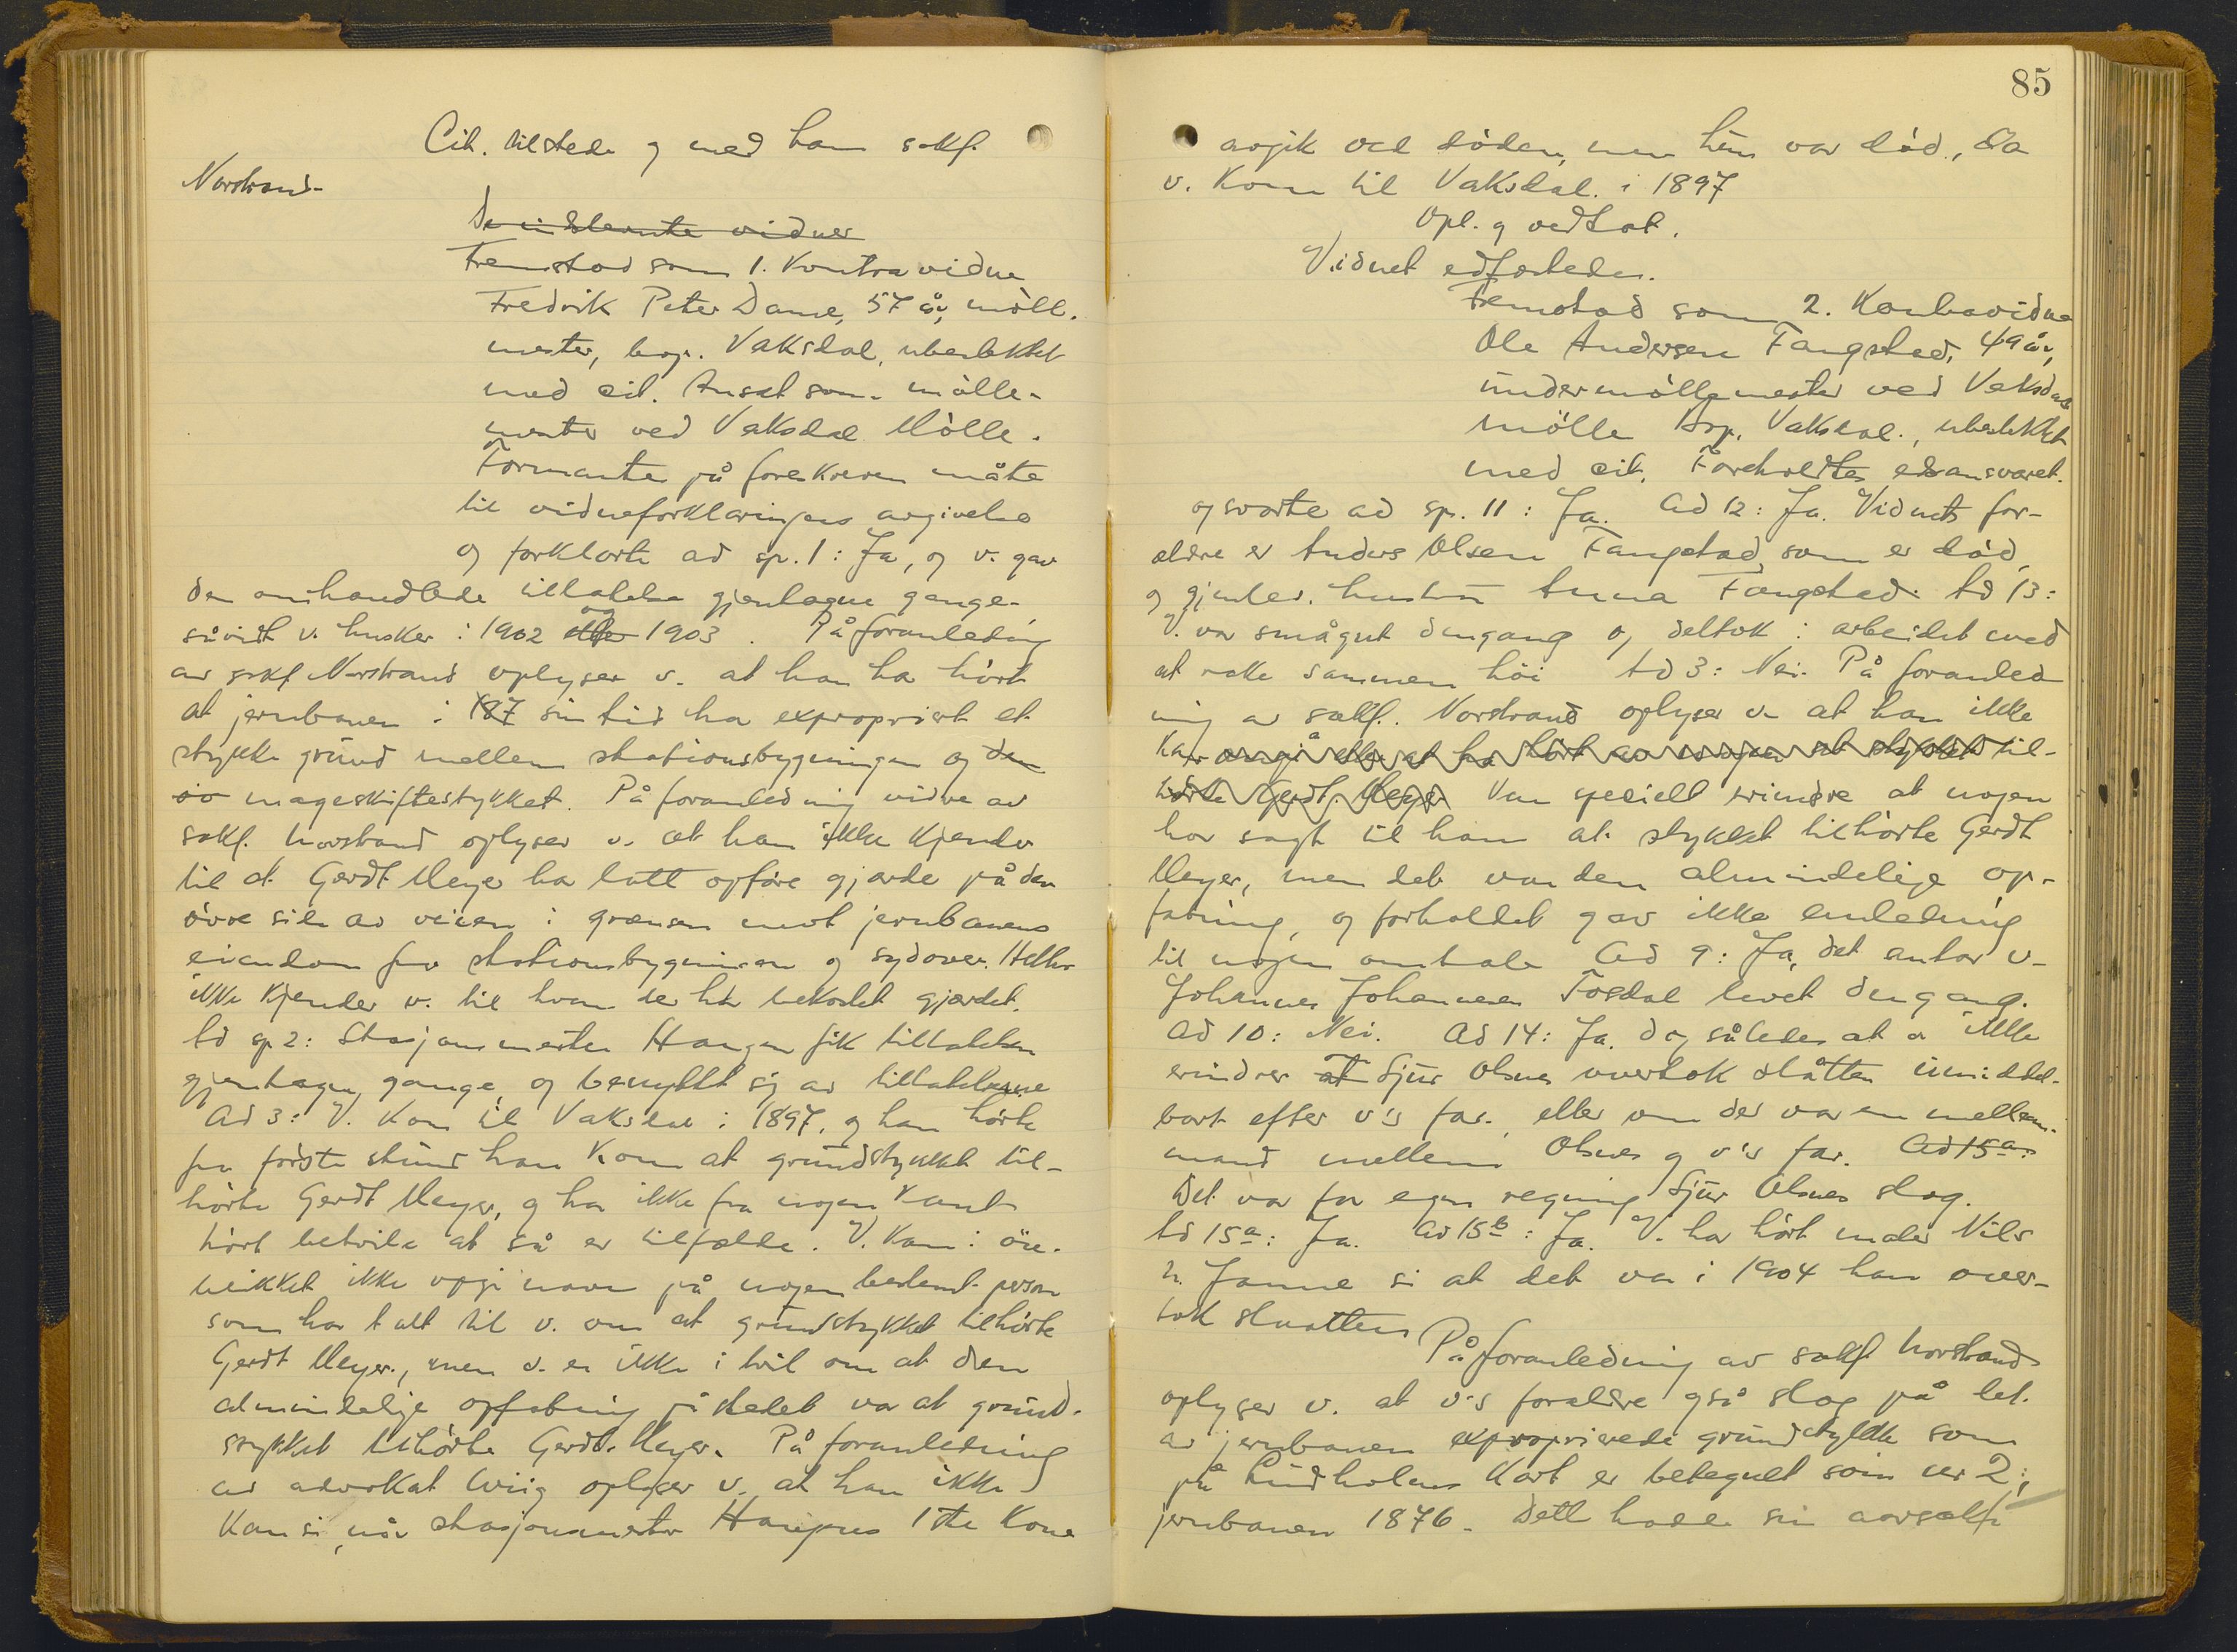 Cit. tilstede og med ham sakf.
Norstrand.
De indstevnte vidner
Fremstod som 1. Kontravidne
Fredrik Peter Dame, 57 år, möll.
mester, bop. Vaksdal, ubeslektet
med cit. Ansat som mölle-
mester ved Vaksdal Mölle.
Formante på foreskreven måte
til vidneforklaringens avgivelse
og forklarte ad sp. 1: Ja, og v. gav
den omhandlede tillatelse gjentagne gange
såvidt v. husker i 1902 eller og 1903. På foranledning
av sakf Norstrand oplyser v. at han ha hört
at jernbanen i 187 sin tid ha expropriert et
stykke grund mellem stationsbygningen og den
mageskiftestykket. På foranledning vidre av
sakf. Norstrand oplyser v. at han ikke kjender
til at Gerdt Meyer ha latt opföre gjærde på den
övre side av veien i grænsen mot jernbanens
eiendom fra stationsbygningen og sydover. Heller
ikke kjender v. til hvem der har bekostet gjærdet.
Ad sp 2: Stasjonsmester Haugen fik tillatelsen
gjentagne gange og benyttet sig av tillatelserne
Ad 3: V. kom til Vaksdal i 1897, og han hörte
fra förste stund han kom at grundstykket til-
hörte Gerdt Meyer, og har ikke fra nogen kant
hört betvile at så er tilfælde. V. kan i öie-
blikket ikke opgi navn på nogen bestemt person
som har talt til v. om at grundstykket tilhörte
Gerdt Meyer, men v. er ikke i tvil om at den
almindelige opfatning på stedet var at grund-
stykket tilhörte Gerdt Meyer. På foranledning
av advokat Wiig oplyser v. at han ikke
kan si, når stasjonsmester Haugens 1ste Kone
85
avgik ved döden, men hun var död, da
v. kom til Vaksdal i 1897
Opl. og vedtat.
Vidnet edfæstedes.
Fremstod som 2. Kontravidne
Ole Andersen Fangstad, 49 år,
undermöllemester ved Vaksdal
mölle bop. Vaksdal, ubeslektet
med cit. Foreholdtes edsansvaret
og svarte ad sp. 11: Ja. Ad 12: Ja. Vidnets for-
ældre er Anders Olsen Fangstad, som er död,
og gjenlev. hustru Anna Fangstad. Ad 13:
V. var smågut dengang og deltok i arbeidet med
at rake sammen höi Ad 3: Nei. På foranled
ning av sakf. Norstrand oplyser v. at han ikke
kan angi eller at ha hört av nogen at stykket til-
hörte Gerdt Meyer kan specielt erindre at nogen
har sagt til ham at stykket tilhörte Gerdt
Meyer, men det var den almindelige op-
fatning, og forholdet gav ikke anledning
til nogen omtale Ad 9: Ja, det antar v.
Johannes Johannesen Fosdal levet dengang.
Ad 10: Nei. Ad 14: Ja. dog således at v ikke
erindrer at Sjur Olsnes overtok slåtten umiddel-
bart efter v's far, eller om der var en mellem-
mand mellem Olsnes og v's far. Ad 15a:
Det var for egen regning Sjur Olsnes slog.
Ad 15a: Ja. Ad 15b: Ja. V. har hört maler Nils
N. Jamne si at det var i 1904 han over-
tok slaatten
På foranledning av sakf Norstrand
oplyser v. at v's forældre også slog på det
av jernbanen exproprierede grundstykke som
på Lindholms kart er betegnet som nr 2;
jernbanen 1876. Dette hadde sin